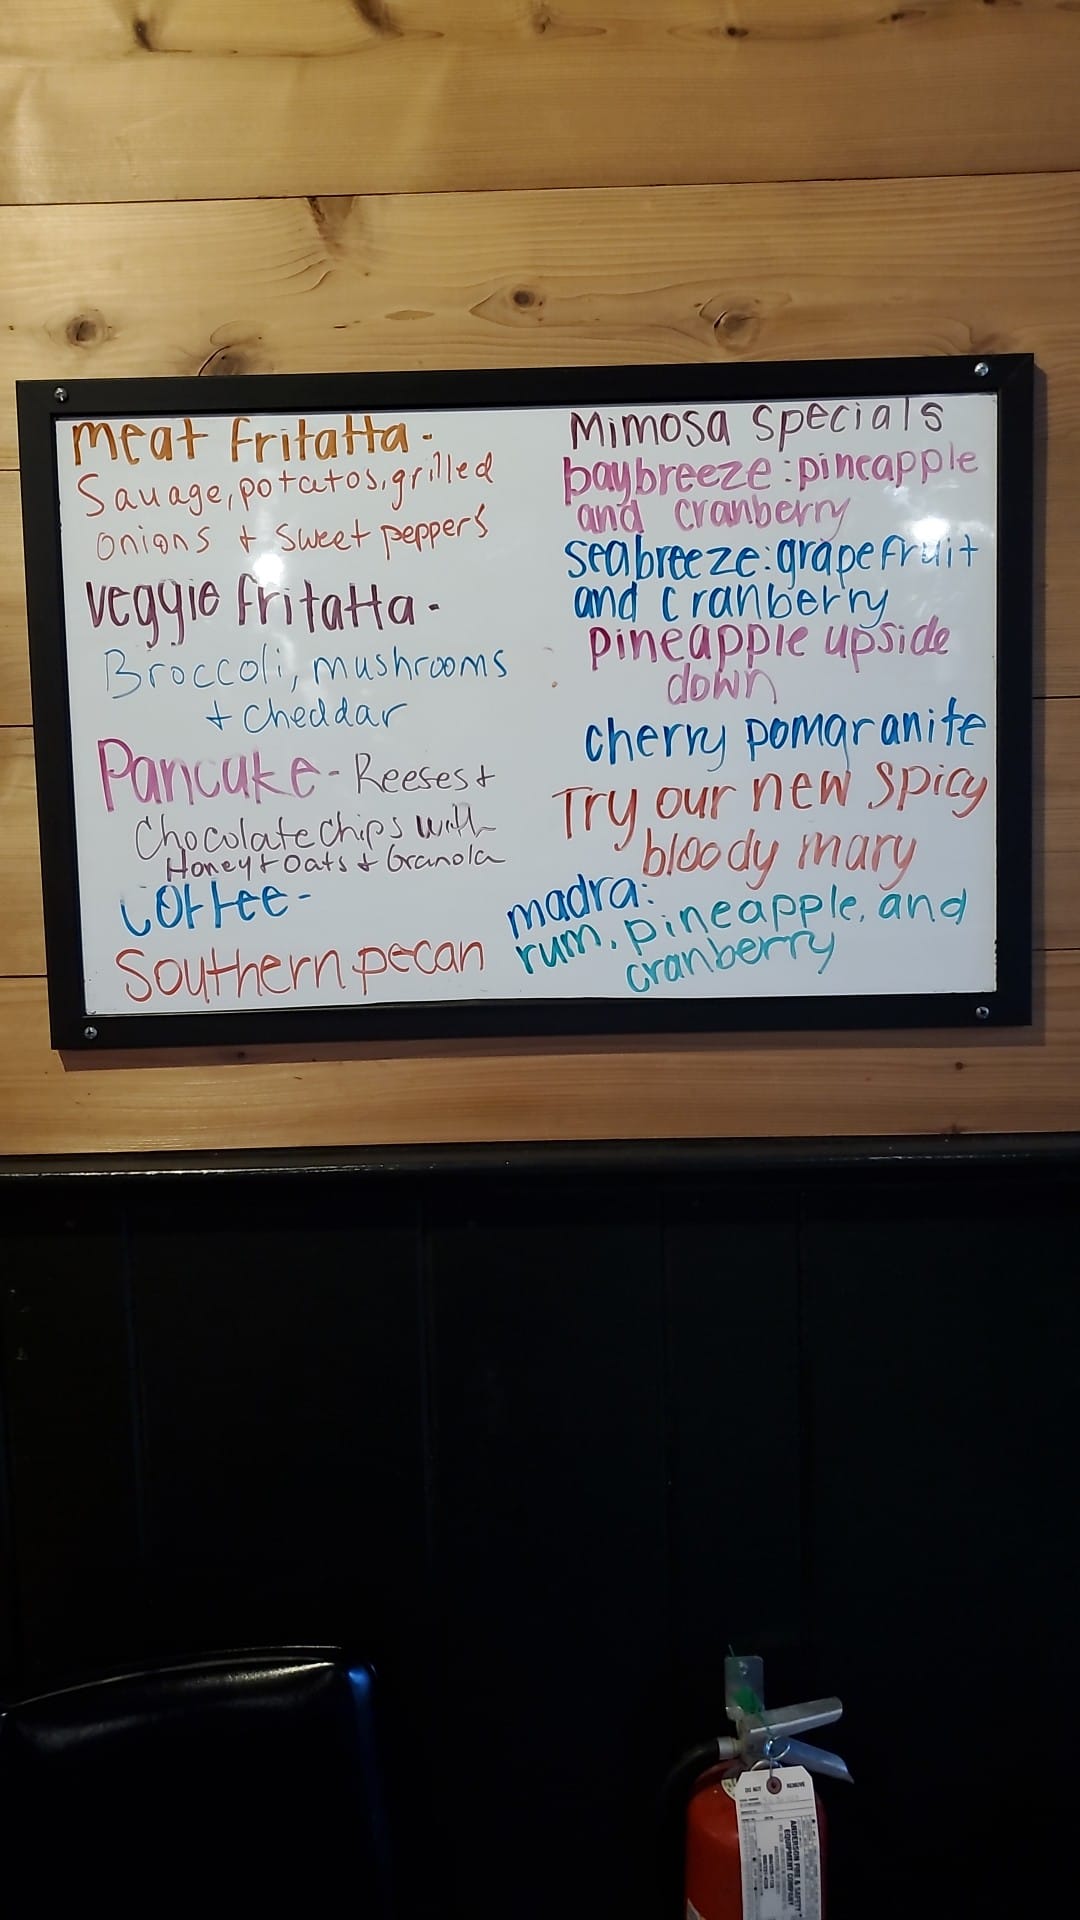 meat fritatta-
Sauage, potatos, grilled
onions + sweet peppers
veggie fritatta-
Broccoli, mushrooms
+ cheddar
Pancake- Reeses +
Chocolate chips with
Honey + Oats + Granola
coffee-
Southern pecan
Mimosa specials
baybreeze: pineapple
and cranberry
seabreeze: grapefruit
and cranberry
pineapple upside
down
cherry pomagranite
Try our new spicy
bloody mary
madra:
rum, pineapple, and
cranberry
DO NOT REMOVE
ANDERSON FIRE & SAFETY
EQUIPMENT COMPANY